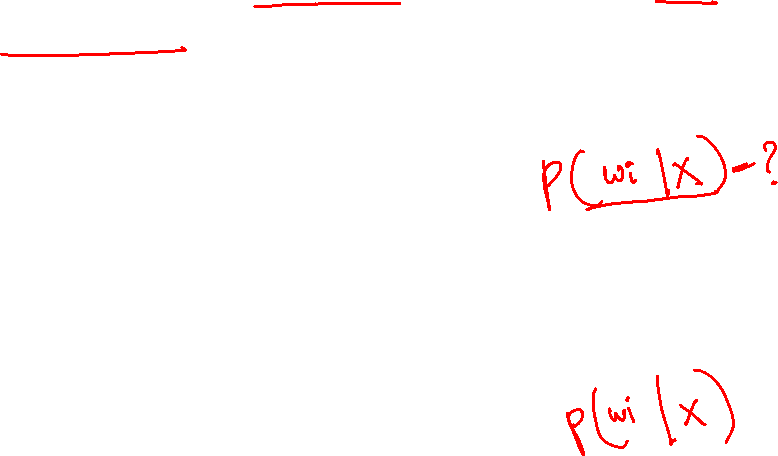 P(wi|X) - ?
P(wi|X)